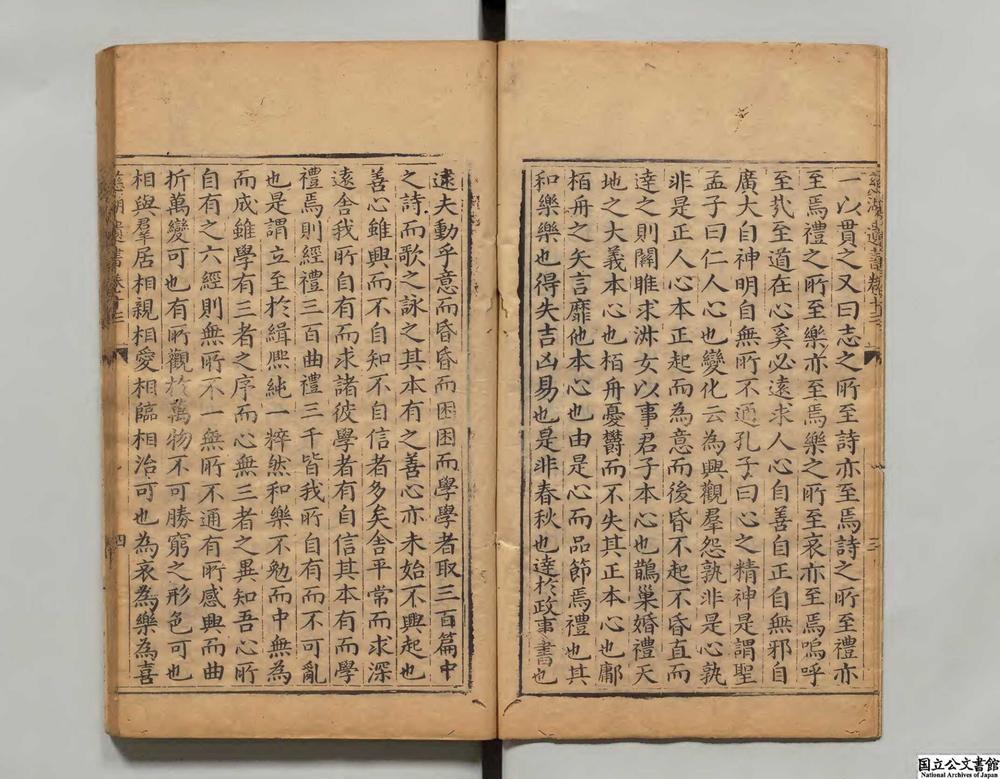 一以貫之又曰志之所至詩亦至焉詩之所至禮亦
至焉禮之所至樂亦至焉樂之所至哀亦至焉嗚呼
至哉至道在心奚必遠求人心自善自正自無邪自
廣大自神明自無所不通孔子曰心之精神是謂聖
孟子曰仁人心也變化云為興觀羣怨孰非是心孰
非是正人心本正起而為意而後昏不起不昏直而
達之則關雎求淑女以事君子本心也鵲巢婚禮天
地之大義本心也栢舟憂鬱而不失其正本心也鄘
栢舟之矢言靡他本心也由是心而品節焉禮也其
和樂樂也得失吉凶易也是非春秋也達於政事書也
三
逺夫動乎意而昏昏而困困而學學者取三百篇中
之詩而歌之詠之其本有之善心亦未始不興起也
善心雖興而不自知不自信者多矣舍平常而求深
逺舍我所自有而求諸彼學者有自信其本有而學
禮焉則經禮三百曲禮三千皆我所自有而不可亂
也是謂立至於緝熙純一粹然和樂不勉而中無為
而成雖學有三者之序而心無三者之異知吾心所
自有之六經則無所不一無所不通有所感興而曲
折萬變可也有所觀於萬物不可勝窮之形色可也
相與羣居相親相愛相臨相治可也為哀為樂為喜
慈湖遺書卷十三
四
国立公文書館
National Archives of Japan